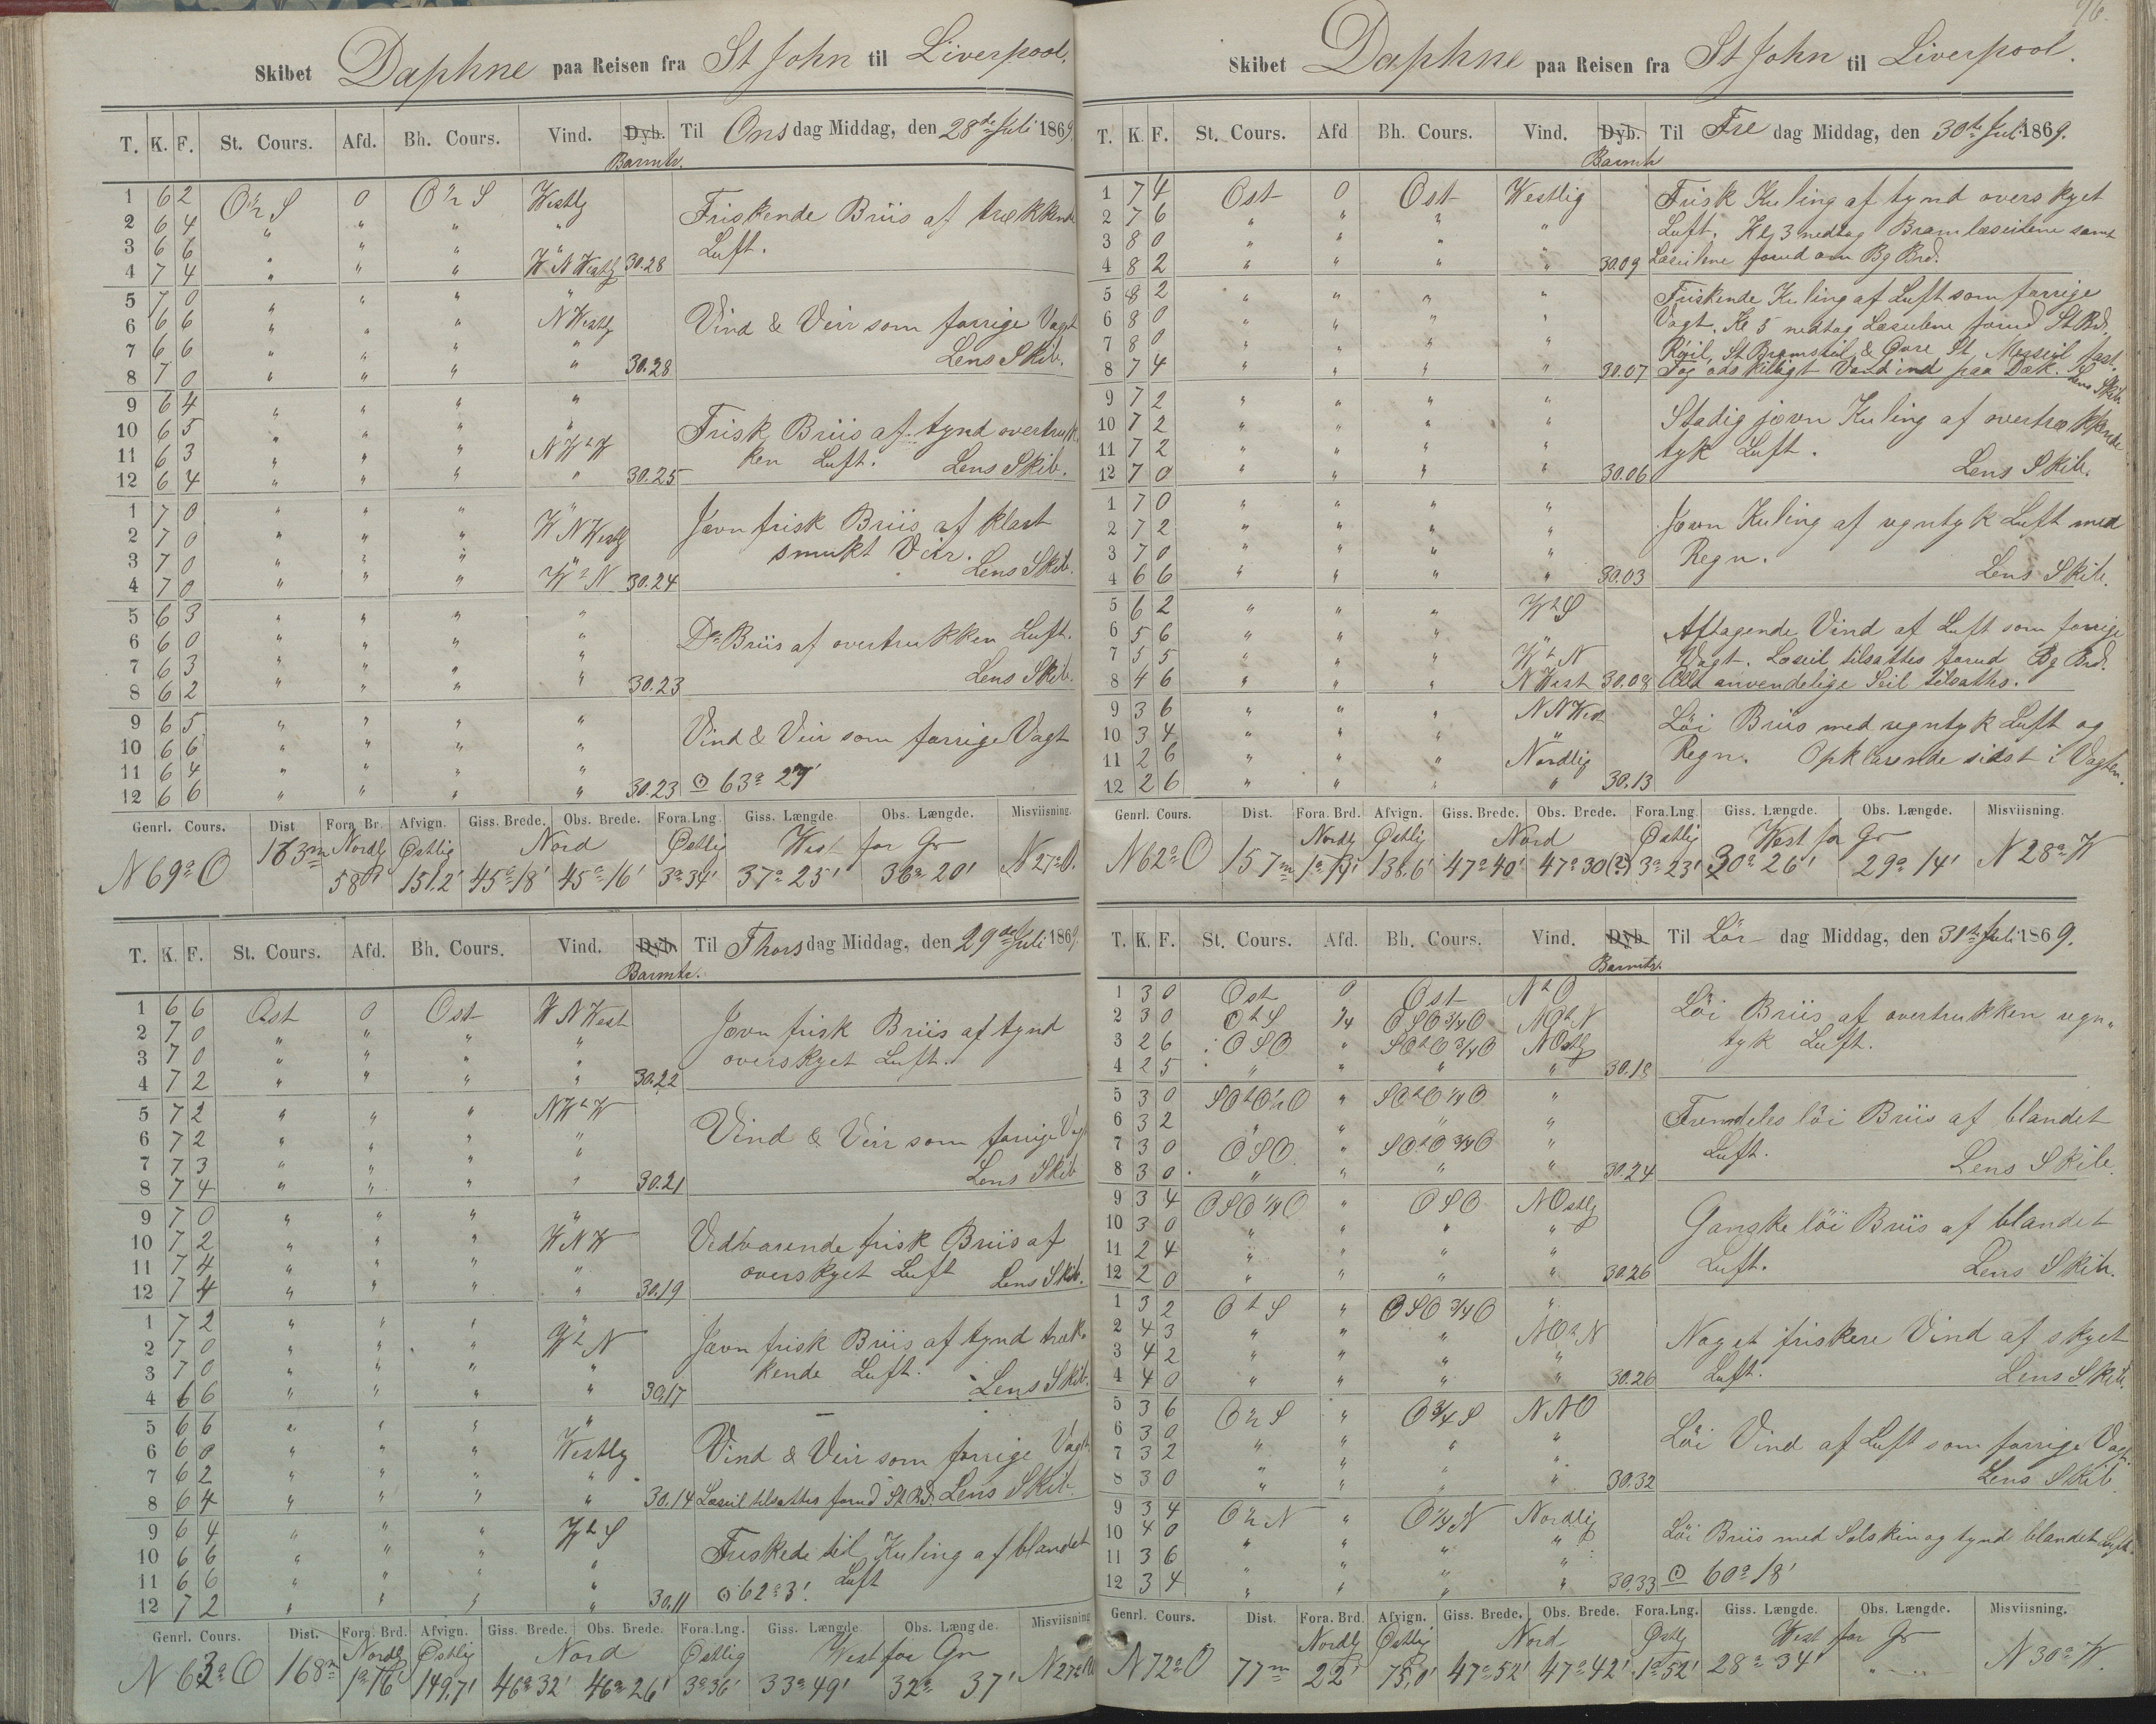 Skibet Daphne paa Reisen fra St John til Liverpool.
T. K. F. St. Cours. Afd. Bh. Cours. Vind. Dyb. Til Onsdag Middag, den 28de Juli 1869.
Barmtr.
1 6 2 O½S 0 O½S Westlg
Friskende Briis af trækkende
2 6 4 " " " "
Luft.
3 6 6 " " "
4 7 4 " " " WNWestlg 30.28
5 7 0 " " " "
6 6 6 " " " NWestlg
Vind & Veir som forrige Vagt
7 6 6 " " " "
Lens Skib.
8 7 0 " " " " 30.28
9 6 4 " " " "
10 6 5 " " " "
Frisk Briis af tynd overtruk-
11 6 3 " " " NWtW
ken Luft. Lens Skib.
12 6 4 " " " " 30.25
1 7 0 " " " "
Jævn frisk Briis af klart
2 7 0 " " " WNWestlg
smukt Veir.
3 7 0 " " " "
Lens Skib.
4 7 0 " " " WtN 30.24
5 6 3 " " " "
6 6 0 " " " "
Do Briis af overtrukken Luft.
7 6 3 " " " "
Lens Skib.
8 6 2 " " " " 30.23
9 6 5 " " " "
10 6 6 " " " "
Vind & Veir som forrige Vagt
11 6 4 " " " "
12 6 6 " " " " 30.23 ⊙ 63° 27'
Genrl. Cours. Dist Fora. Br. Afvign. Giss. Brede. Obs. Brede. Fora.Lng. Giss. Længde. Obs. Længde. Misviisning.
Nordlg Østlig Nord Østlig West for Gr
N 69° O 163m 58' 151.2' 45°18' 45°16' 3°34' 37°25' 36°20' N 27° W.
T. K. F. St. Cours. Afd. Bh. Cours. Vind. Dyb. Til Thorsdag Middag, den 29de Juli 1869.
Barmtr.
1 6 6 Ost 0 Ost WNWest
Jævn frisk Briis af tynd
2 7 0 " " " "
overskyet Luft.
3 7 0 " " " "
4 7 2 " " " " 30.22
5 7 2 " " " NWtW
6 7 2 " " " "
Vind & Veir som forrige Vagt
7 7 3 " " " "
Lens Skib
8 7 4 " " " " 30.21
9 7 0 " " " "
10 7 2 " " " WNW
Vedvarende frisk Briis af
11 7 4 " " " "
overskyet Luft Lens Skib.
12 7 4 " " " " 30.19
1 7 2 " " " "
2 7 0 " " " WtN
Jævn frisk Briis af tynd træk-
3 7 0 " " " "
kende Luft. Lens Skib.
4 6 6 " " " " 30.17
5 6 6 " " " "
6 6 0 " " " Westlg
Vind & Veir som forrige Vagt
7 6 2 " " " "
8 6 4 " " " " 30.14 Læseil tilsattes forud St Bd. Lens Skib.
9 6 4 " " " WtS
10 6 6 " " " "
Friskede til Kuling af blandet
11 6 6 " " " "
Luft
12 7 2 " " " " 30.11 ⊙ 62° 3'.
Genrl. Cours. Dist. Fora. Brd. Afvign. Giss. Brede. Obs. Brede. Fora.Lng. Giss. Længde. Obs. Længde. Misviisning
Nordlg Østlig Nord Østlig West for Gr
N 63° O 168m 1°16' 149,7' 46°32' 46°26' 3°36' 33°49' 32° 37' N 27° W
96.
Skibet Daphne paa Reisen fra St John til Liverpool.
T. K. F. St. Cours. Afd Bh. Cours. Vind. Dyb. Til Fredag Middag, den 30te Juli 1869.
Barmtr
1 7 4 Ost 0 Ost Westlig
Frisk Kuling af tynd overskyet
2 7 6 " " " "
Luft. Klg 3 nedtog Bramlæseilene samt
3 8 0 " " " "
4 8 2 " " " " 30.09 Læseilene forud om Bg Brd.
5 8 2 " " " "
Friskende Kuling af Luft som forrige
6 8 0 " " " "
Vagt. Kl 5 nedtog Læseilene forud St Bd.
7 8 0 " " " "
Røil, St Bramseil, & Øvre St. Merseil fast.
8 7 4 " " " " 30.07 Tog adskilligt Vand ind paa Dæk. Lens Skib.
9 7 2 " " " "
Stadig jævn Kuling af overtrækkende
10 7 2 " " " "
tyk Luft.
11 7 2 " " " "
Lens Skib.
12 7 0 " " " " 30.06
1 7 0 " " " "
Jævn Kuling af regntyk Luft med
2 7 2 " " " "
Regn.
3 7 0 " " " "
Lens Skib.
4 6 6 " " " " 30.03
5 6 2 " " " WtS
Aftagende Vind af Luft som forrige
6 5 6 " " " "
Vagt. Læseil tilsattes forud Bg Brd.
7 5 5 " " " WtN
8 4 6 " " " NWest 30.08 Alle anvendelige Seil tilsattes.
9 3 6 " " " NNWest
Löi Briis med regntyk Luft og
10 3 4 " " " "
Regn. Opklarende sidst i Vagten.
11 2 6 " " " Nordlig
12 2 6 " " " " 30.13
Genrl. Cours. Dist. Fora. Brd. Afvign. Giss. Brede. Obs. Brede. Fora.Lng. Giss. Længde. Obs. Længde. Misviisning.
Nordlg Østlig Nord Østlig West for Gr
N 62° O 157m 1°14' 138.6' 47°40' 47°30(?) 3°23' 30°26' 29° 14' N 28° W
T. K. F. St. Cours. Afd. Bh. Cours. Vind. Dyb. Til Lördag Middag, den 31te Juli 1869.
Barmtr.
1 3 0 Ost 0 Ost NtO
Löi Briis af overtrukken regn-
2 3 0 OtS ¼ OSO¾O NOtN
tyk Luft.
3 2 6 OSO " SOtO¾O NOstlg
4 2 5 " " " " 30.18
5 3 0 SOtO½O " SOtO¼O "
Fremdeles löi Briis af blandet
6 3 2 " " " "
Luft.
7 3 0 OSO " SOtO¾O "
Lens Skib.
8 3 0 " " " " 30.24
9 3 4 OSO¼O " OSO NOstlg
Ganske löi Briis af blandet
10 3 0 " " " "
Luft.
11 2 4 " " " "
Lens Skib.
12 2 0 " " " " 30.26
1 3 2 OtS " OSO¾O "
Noget friskere Vind af skyet
2 4 3 " " " NOtN
Luft.
3 4 2 " " " "
Lens Skib.
4 4 0 " " " " 30.26
5 3 6 O½S " O¾S NNO
Löi Vind af Luft som forrige Vagt
6 3 0 " " " "
7 3 2 " " " "
Lens Skib.
8 3 0 " " " " 30.32
9 3 4 O½N " O¼N Nordlig
Löi Briis med Solskin og tynd blandet Luft.
10 4 0 " " " "
11 3 6 " " " "
12 3 4 " " " " 30.33 ⊙ 60° 18'
Genrl. Cours. Dist. Fora. Brd. Afvign. Giss. Brede. Obs. Brede. Fora.Lng. Giss. Længde. Obs. Længde. Misviisning.
Nordlg Østlig Nord Østlg West for Gr
N 72° O 77m 22' 75,0' 47°52' 47°42' 1°52' 28° 34' " N 30° W.